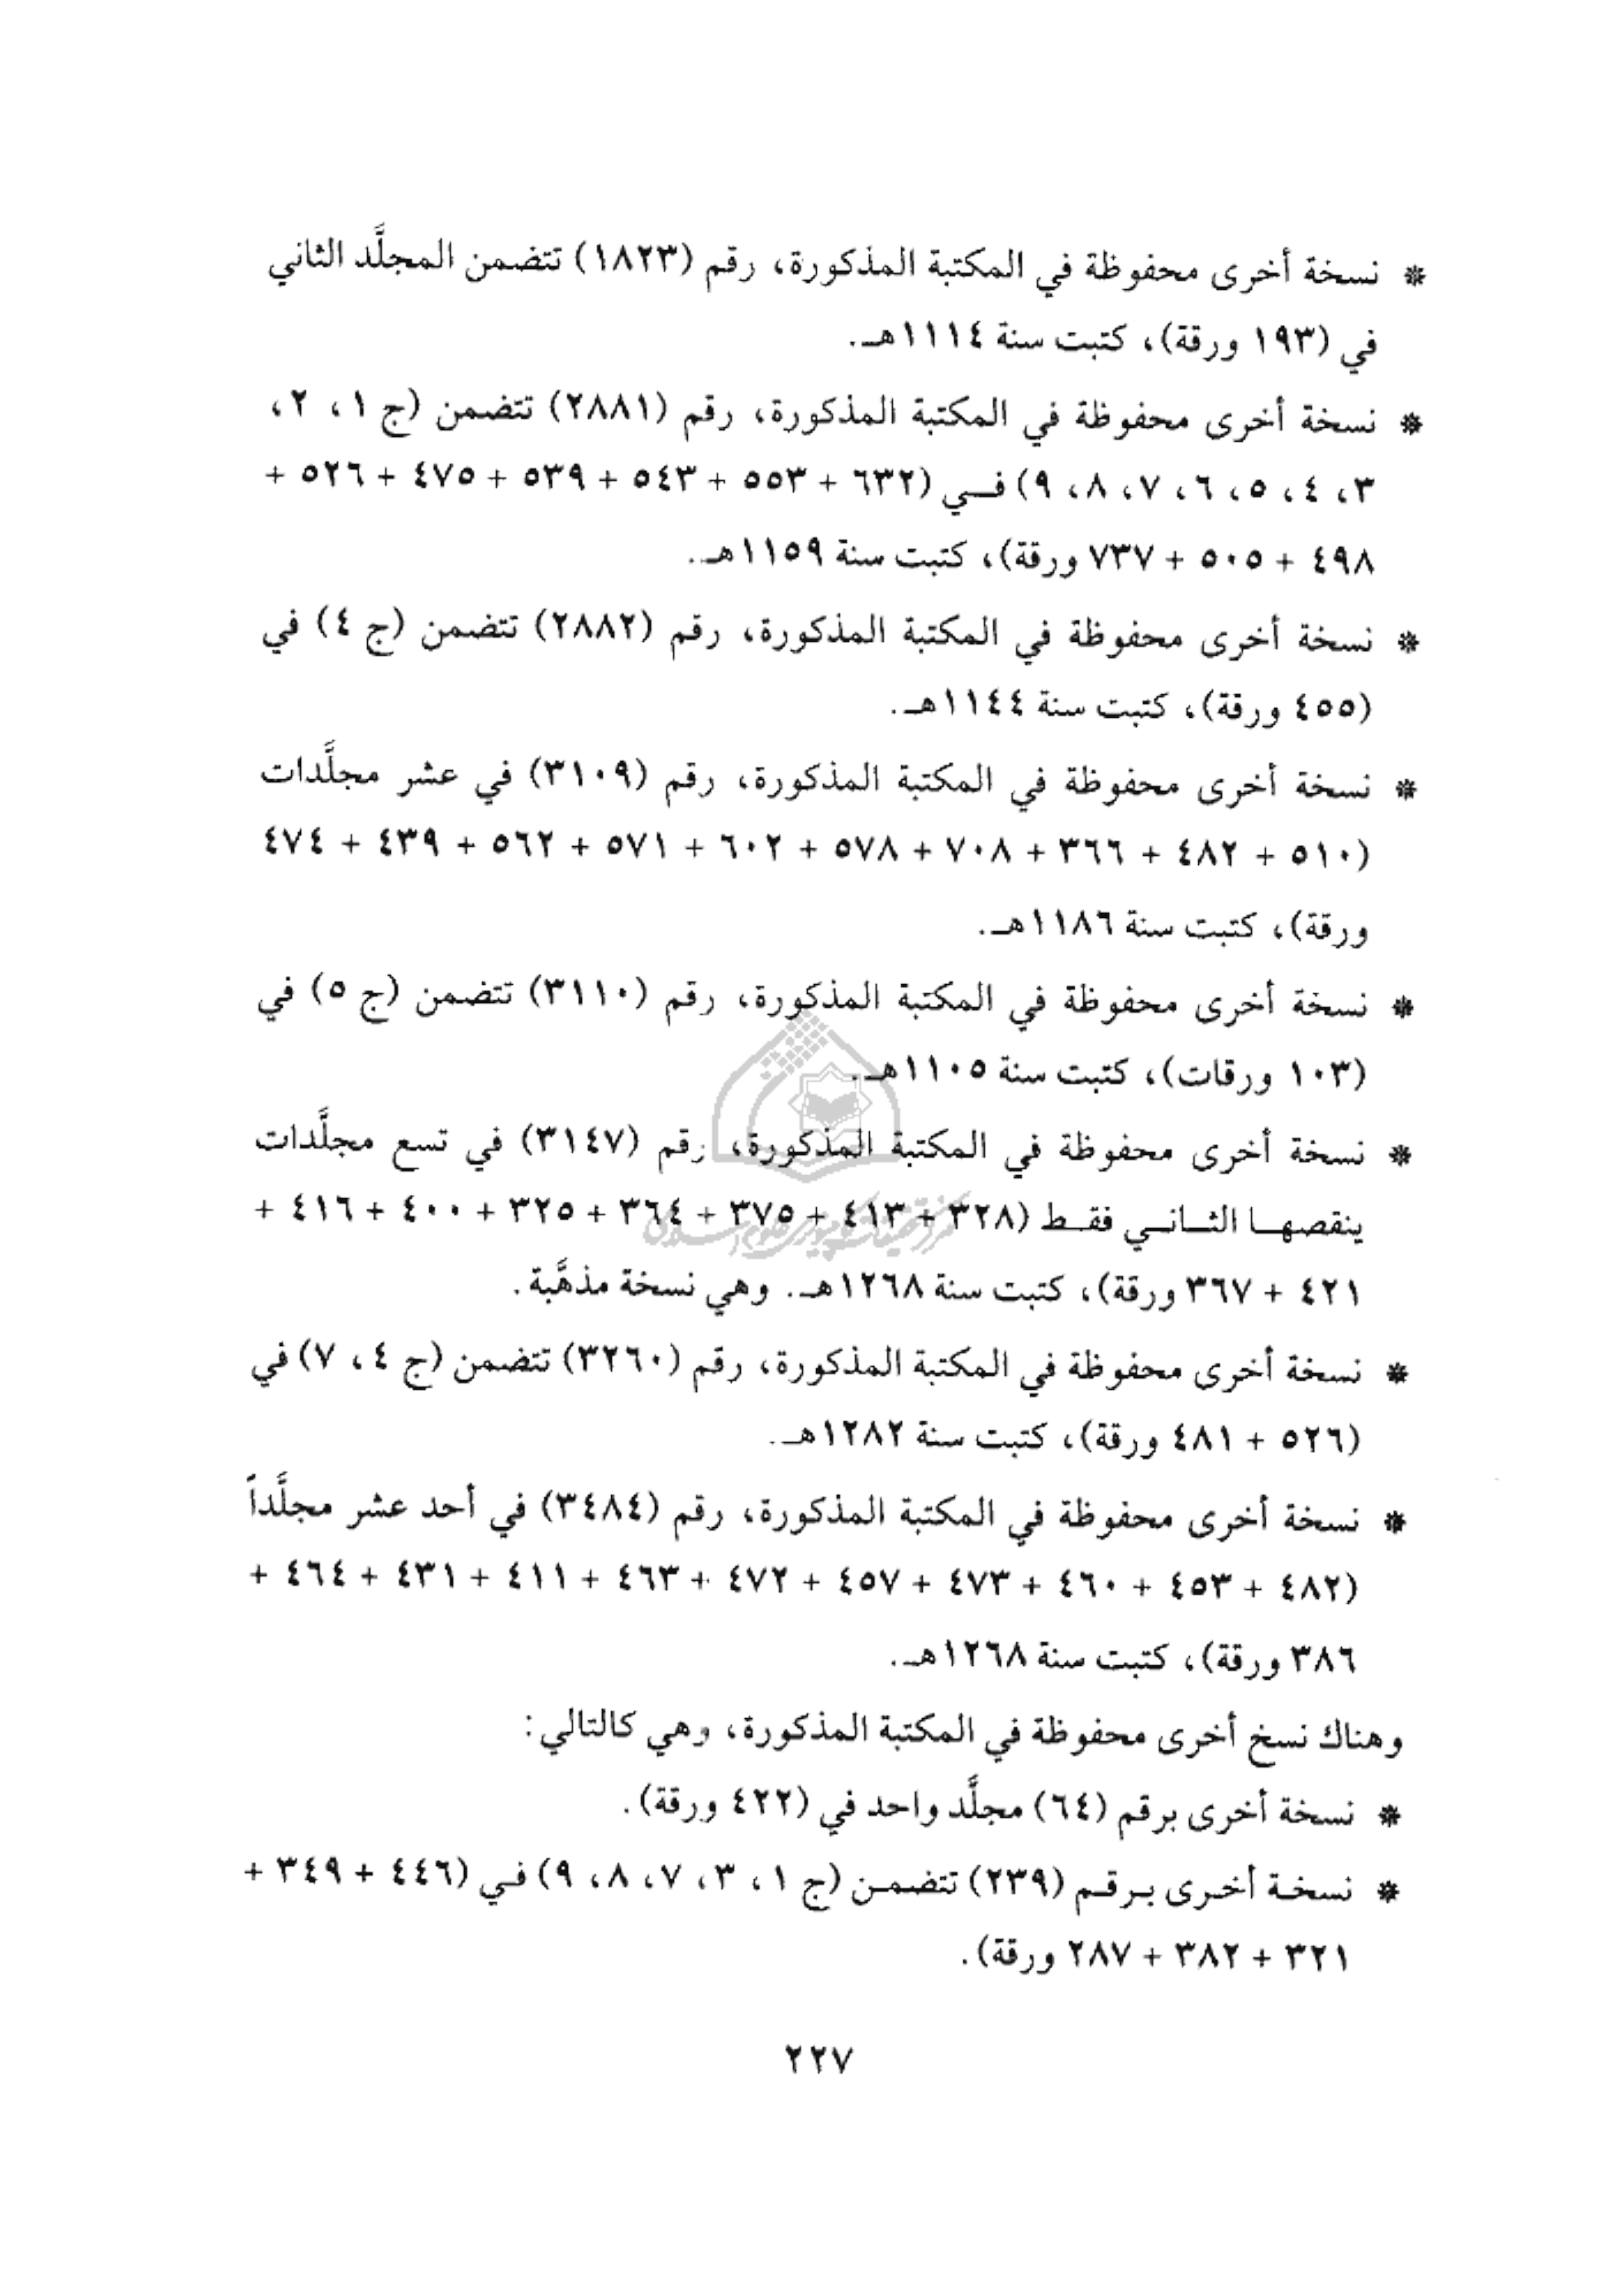 * نسخة أخرى محفوظة في المكتبة المذكورة، رقم (١٨٢٣) تتضمن المجلَّد الثاني
في (١٩٣ ورقة)، كتبت سنة ١١١٤هـ.
* نسخة أخرى محفوظة في المكتبة المذكورة، رقم (٢٨٨١) تتضمن (ج ١، ٢،
٣، ٤، ٥، ٦، ٧، ٨، ٩) فــي (٦٣٢ + ٥٥٣ + ٥٤٣ + ٥٣٩ + ٤٧٥ + ٥٢٦ +
٤٩٨ + ٥٠٥ + ٧٣٧ ورقة)، كتبت سنة ١١٥٩هـ.
* نسخة أخرى محفوظة في المكتبة المذكورة، رقم (٢٨٨٢) تتضمن (ج ٤) في
(٤٥٥ ورقة)، كتبت سنة ١١٤٤هـ.
* نسخة أخرى محفوظة في المكتبة المذكورة، رقم (٣١٠٩) في عشر مجلَّدات
(٥١٠ + ٤٨٢ + ٣٦٦ + ٧٠٨ + ٥٧٨ + ٦٠٢ + ٥٧١ + ٥٦٢ + ٤٣٩ + ٤٧٤
ورقة)، كتبت سنة ١١٨٦هـ.
* نسخة أخرى محفوظة في المكتبة المذكورة، رقم (٣١١٠) تتضمن (ج ٥) في
(١٠٣ ورقات)، كتبت سنة ١١٠٥هـ.
* نسخة أخرى محفوظة في المكتبة المذكورة، رقم (٣١٤٧) في تسع مجلَّدات
ينقصهــا الثــانــي فقــط (٣٢٨ + ٤١٣ + ٣٧٥ + ٣٦٤ + ٣٢٥ + ٤٠٠ + ٤١٦ +
٤٢١ + ٣٦٧ ورقة)، كتبت سنة ١٢٦٨هـ. وهي نسخة مذهَّبة.
* نسخة أخرى محفوظة في المكتبة المذكورة، رقم (٣٢٦٠) تتضمن (ج ٤، ٧) في
(٥٢٦ + ٤٨١ ورقة)، كتبت سنة ١٢٨٢هـ.
* نسخة أخرى محفوظة في المكتبة المذكورة، رقم (٣٤٨٤) في أحد عشر مجلَّداً
(٤٨٢ + ٤٥٣ + ٤٦٠ + ٤٧٣ + ٤٥٧ + ٤٧٢ + ٤٦٣ + ٤١١ + ٤٣١ + ٤٦٤ +
٣٨٦ ورقة)، كتبت سنة ١٢٦٨هـ.
وهناك نسخ أخرى محفوظة في المكتبة المذكورة، وهي كالتالي:
* نسخة أخرى برقم (٦٤) مجلَّد واحد في (٤٢٢ ورقة).
* نسخـة أخـرى بـرقـم (٢٣٩) تتضمـن (ج ١، ٣، ٧، ٨، ٩) فـي (٤٤٦ + ٣٤٩ +
٣٢١ + ٣٨٢ + ٢٨٧ ورقة).
٢٢٧